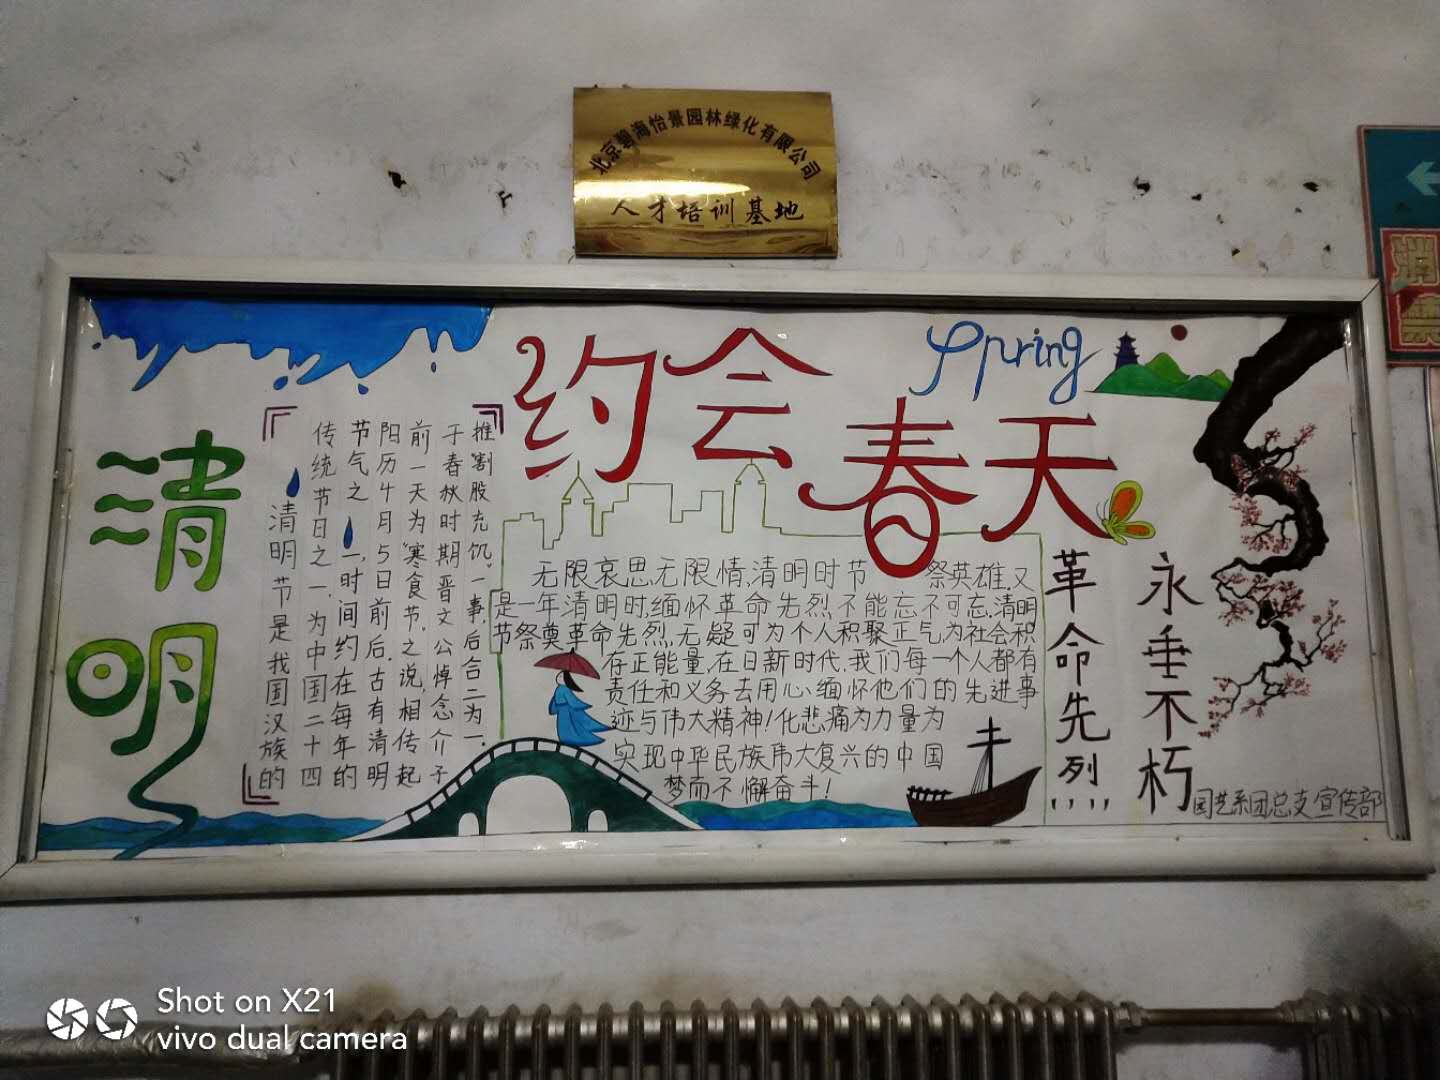 北京碧海怡景园林绿化有限公司
人才培训基地
清明
约会春天
spring
清明节是我国汉族的
传统节日之一,为中国二十四
节气之一,时间约在每年的
阳历4月5日前后。古有清明
前一天为“寒食节”之说,相传起
于春秋时期晋文公悼念介子
推“割股充饥”一事,后合二为一.
无限哀思无限情,清明时节 祭英雄.又
是一年清明时,缅怀革命先烈,不能忘不可忘.清明
节祭奠革命先烈,无疑可为个人积聚正气,为社会积
存正能量,在日新时代,我们每一个人都有
责任和义务去用心缅怀他们的先进事
迹与伟大精神!化悲痛为力量为
实现中华民族伟大复兴的中国
梦而不懈奋斗!
革命先烈,,,,,
永垂不朽
园艺系团总支宣传部
消
禁
Shot on X21
vivo dual camera